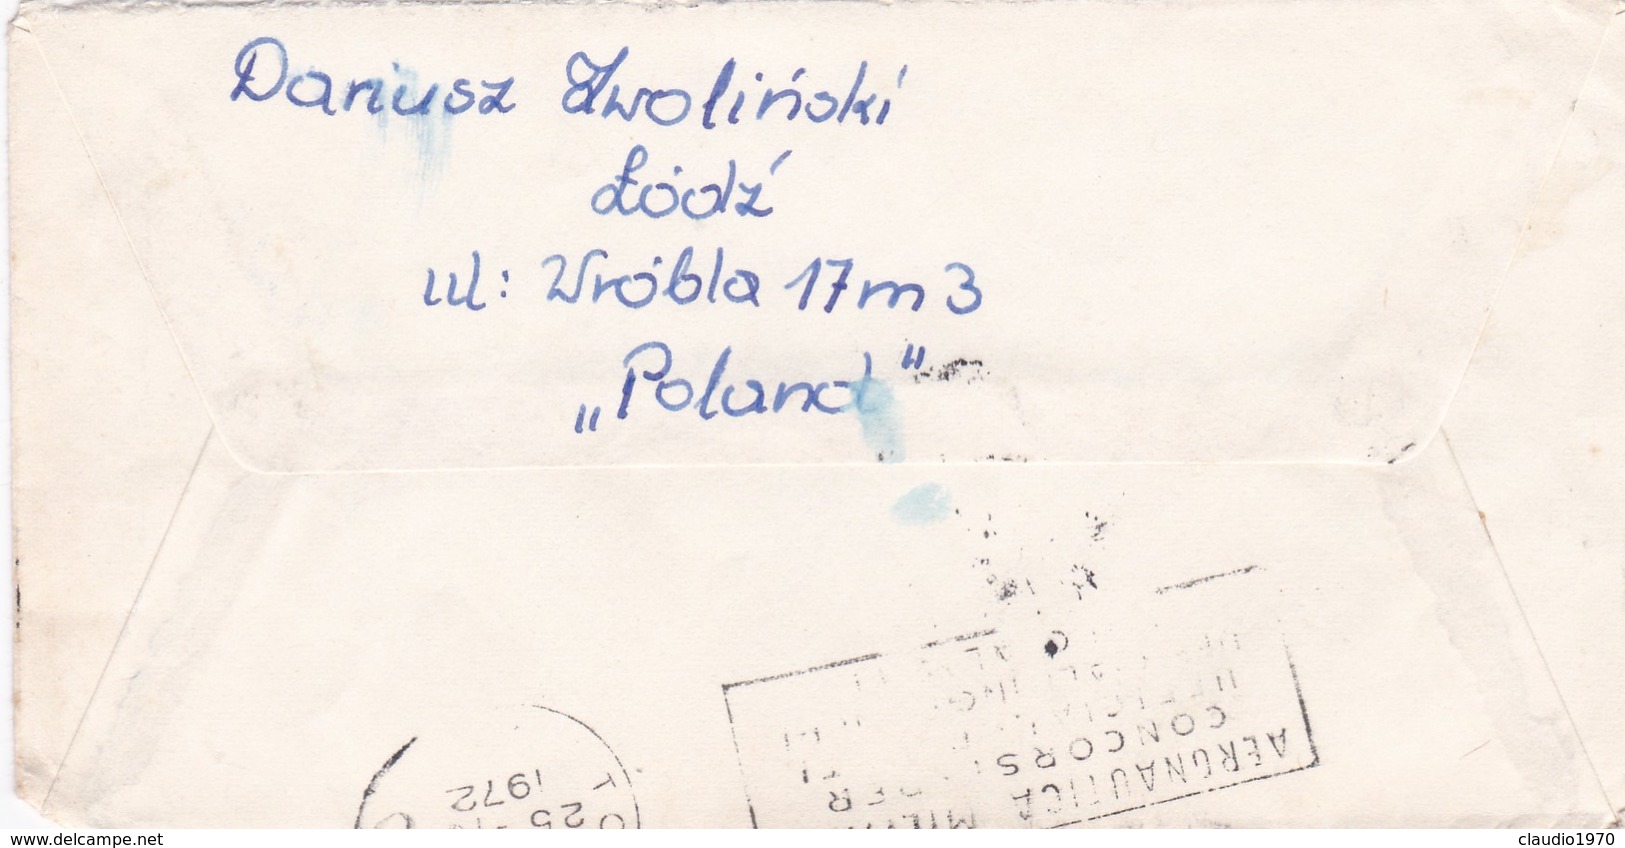 Dariusz Zwoliński
Łódź
ul: Wróbla 17 m 3
„Poland"
AERONAUTICA
CONCORS
1972
25
delcampe.net
claudio1970